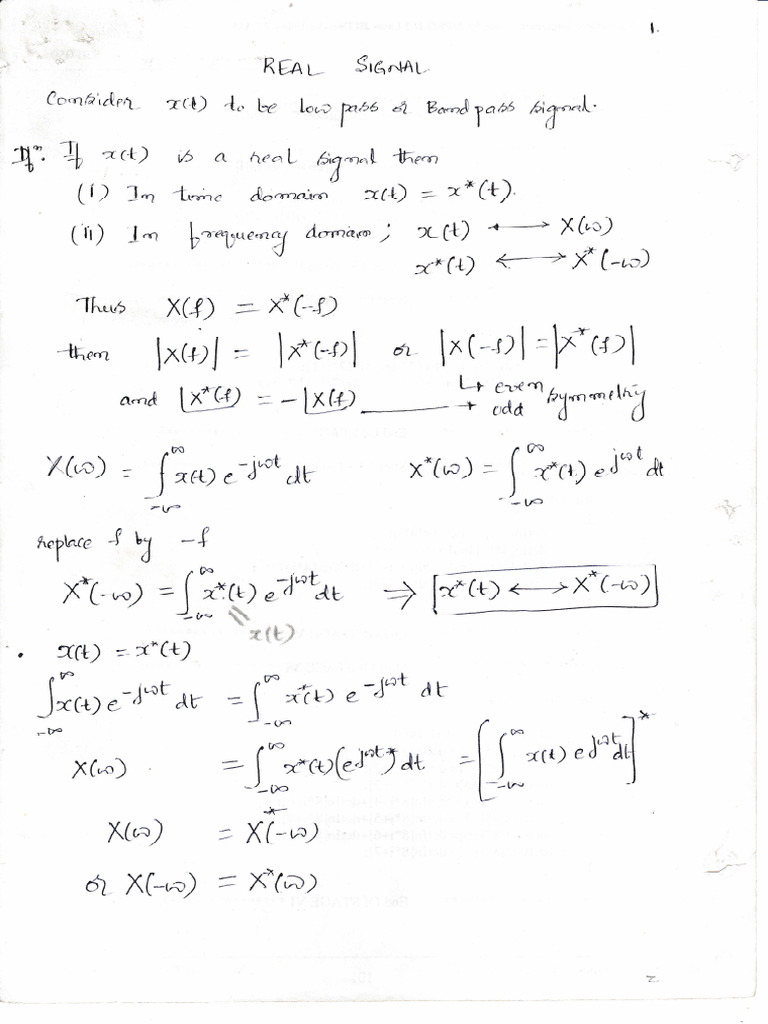 1.
REAL SIGNAL
Consider x(t) to be low pass or Band pass signal.
Ifⁿ. If x(t) is a real signal then
(i) In time domain x(t) = x*(t).
(ii) In frequency domain; x(t) ⟷ X(ω)
x*(t) ⟷ X*(-ω)
Thus X(f) = X*(-f)
then |X(f)| = |X*(-f)| or |X(-f)| = |X*(f)|
↳ even
and ∠X*(f) = -∠X(f) → odd symmetry
X(ω) = ∫_{-∞}^{∞} x(t) e^{-jωt} dt X*(ω) = ∫_{-∞}^{∞} x*(t) e^{jωt} dt
replace f by -f
X*(-ω) = ∫_{-∞}^{∞} x*(t) e^{-jωt} dt ⇒ x*(t) ⟷ X*(-ω)
x(t)
• x(t) = x*(t)
∫_{-∞}^{∞} x(t) e^{-jωt} dt = ∫_{-∞}^{∞} x*(t) e^{-jωt} dt
X(ω) = ∫_{-∞}^{∞} x*(t) (e^{jωt})* dt = [∫_{-∞}^{∞} x(t) e^{jωt} dt]*
X(ω) = X*(-ω)
or X(-ω) = X*(ω)